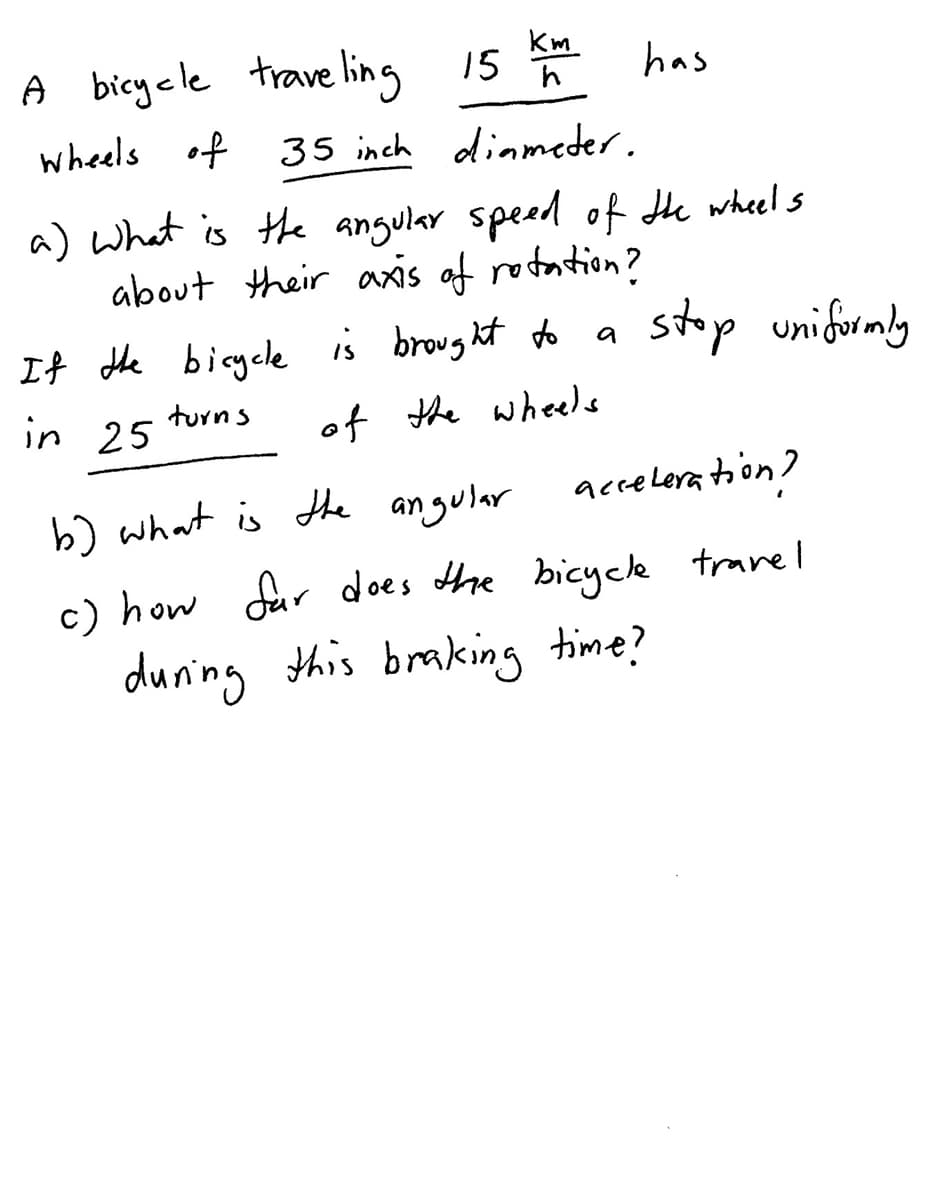 A bicycle traveling 15 km/h has
wheels of 35 inch diameter.
a) What is the angular speed of the wheels
about their axis of rotation?
If the bicycle is brought to a stop uniformly
in 25 turns of the wheels
b) what is the angular acceleration?
c) how far does the bicycle travel
during this braking time?